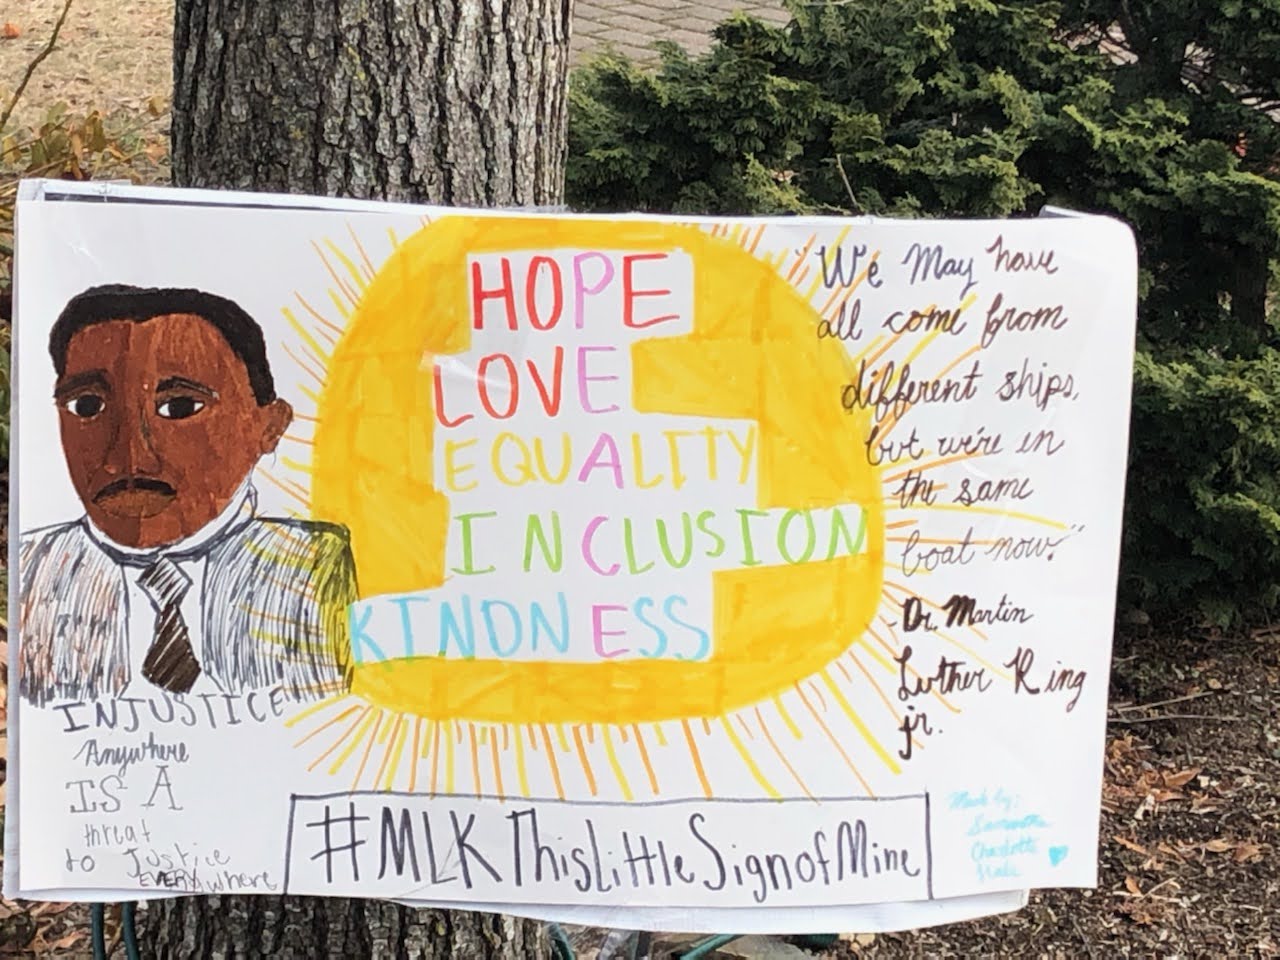 HOPE
LOVE
EQUALITY
INCLUSION
KINDNESS
"We May have
all come from
different ships,
but we're in
the same
boat now."
- Dr. Martin
Luther King
jr.
INJUSTICE
Anywhere
IS A
threat
to Justice
EVERYwhere
#MLKThisLittleSignofMine
Made by:
Samantha
Charlotte